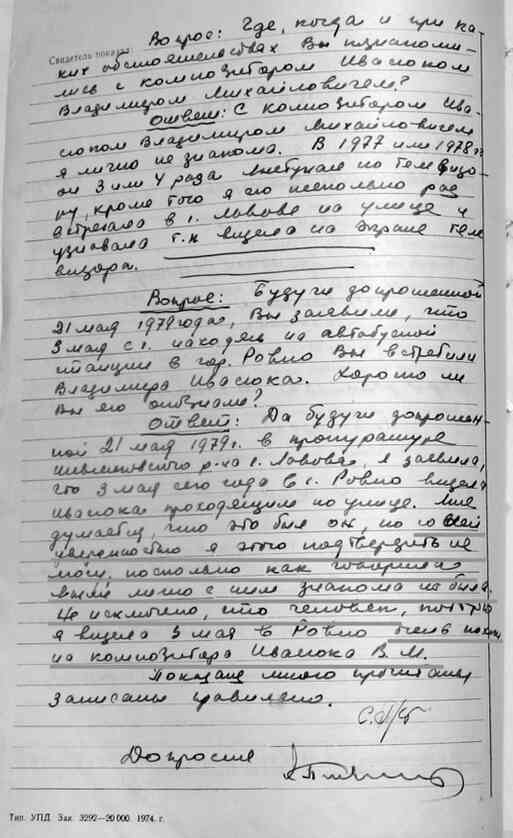 Вопрос: Где, когда и при ка-
Свидетель показал:
ких обстоятельствах Вы познакоми-
лись с композитором Ивасюком
Владимиром Михайловичем?
Ответ: С композитором Ива-
сюком Владимиром Михайловичем
я лично не знакома. В 1977 или 1978 г.
он 3 или 4 раза выступал по телевизо-
ру, кроме того я его несколько раз
встречала в г. Львове на улице и
узнавала т.к. видела на экране теле
визора.
Вопрос: Будучи допрошенной
21 мая 1979 года, Вы заявили, что
3 мая с.г. находясь на автобусной
станции в гор. Ровно Вы встретили
Владимира Ивасюка. Хорошо ли
Вы его опознали?
Ответ: Да будучи допрошен-
ной 21 мая 1979 г. в прокуратуре
р-на г. Львова, я заявила,
что 3 мая сего года в г. Ровно видела
Ивасюка проходящим по улице. Мне
думается, что это был он, но со всей
уверенностью я этого подтвердить не
могу, поскольку как говорила
выше лично с ним знакома не была.
Не исключено, что человек, которого
я видела 3 мая в Ровно очень похож
на композитора Ивасюка В.М.
Показания мною прочитаны
записаны правильно.
Допросил
Тип. УПД. Зак. 3292—20 000. 1974. г.